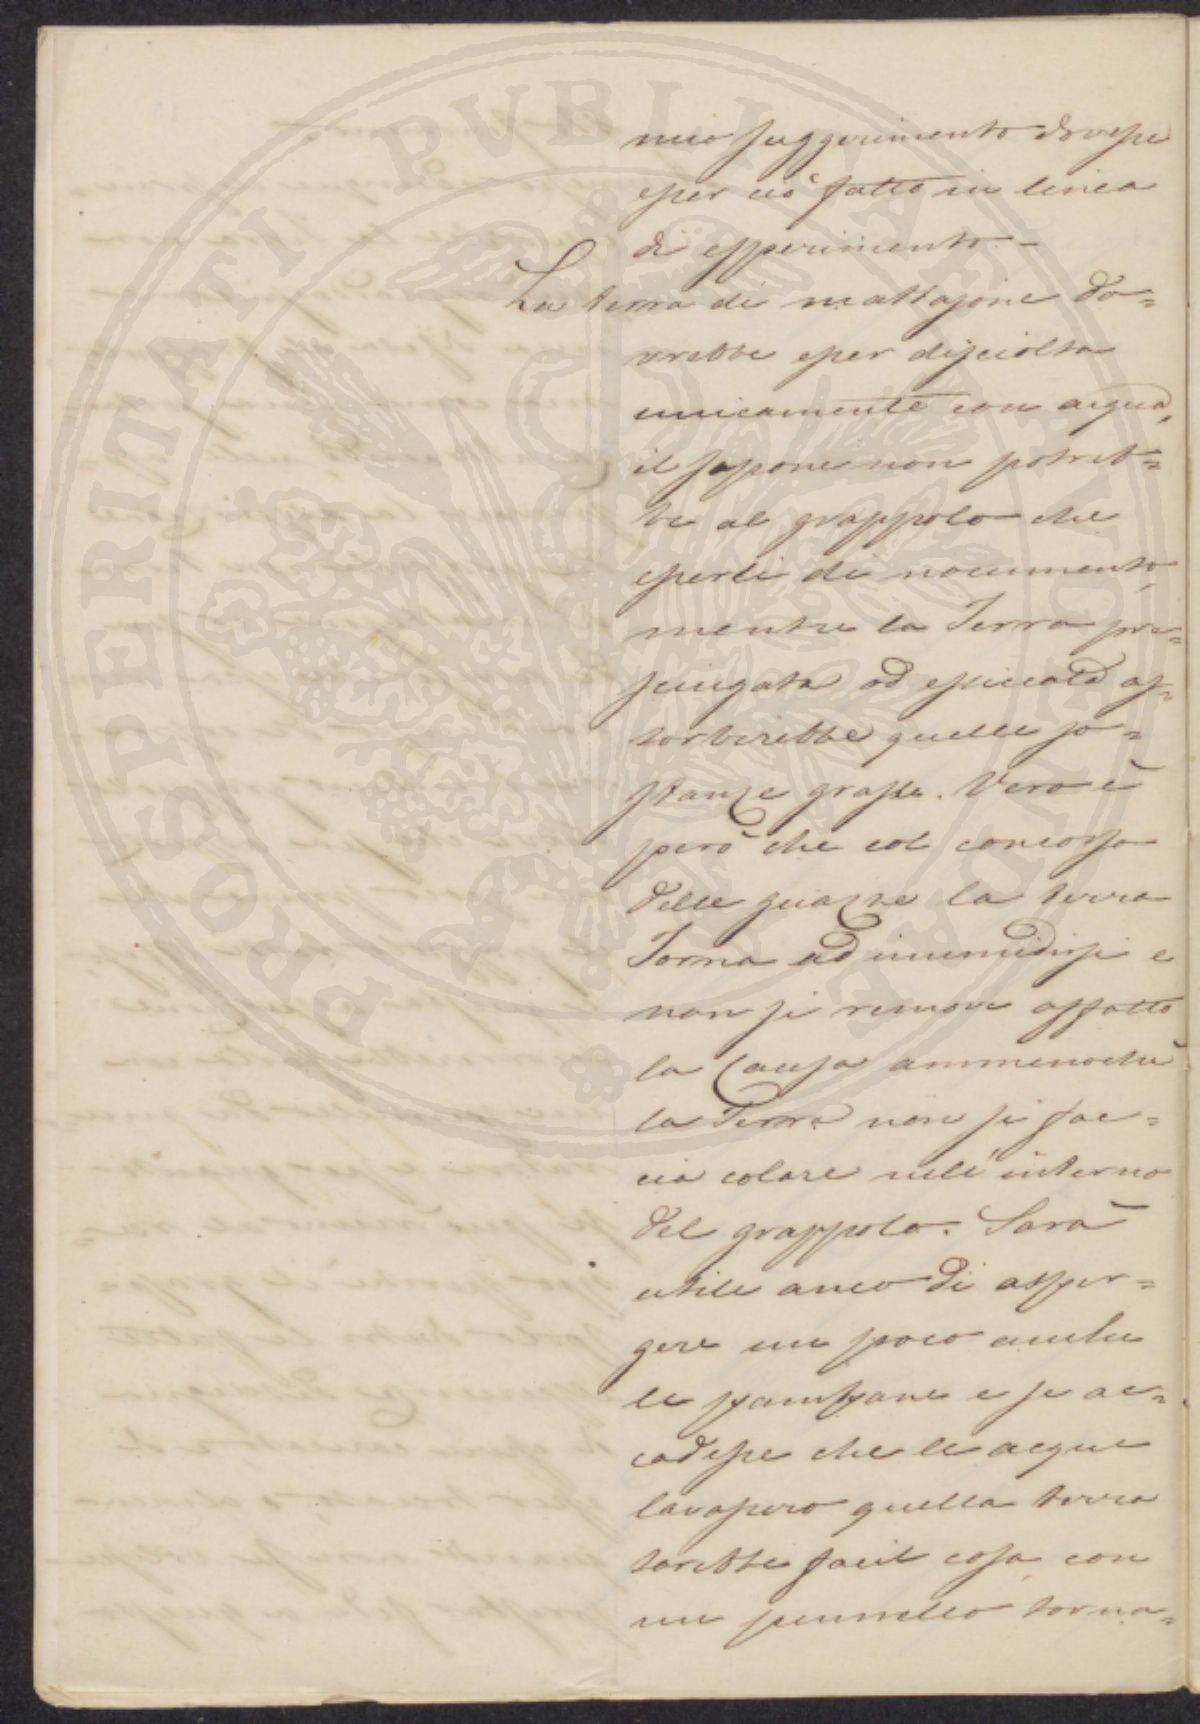 PROSPERITATI PUBLICAE AUGENDAE
mio suggerimento dovesse
esser ciò fatto in linea
di esperimento. –
La terra di mattajone do=
vrebbe esser disciolta
unicamente con acqua,
il sapone non potreb=
be al grappolo che
esserli di nocumento,
mentre la Terra pro=
sciugata ed essiccata as=
sorbirebbe quelle so=
stanze grasse. Vero è
però che col concorso
delle guazze la terra
Torna ad inumidirsi e
non si remove affatto
la Causa ammenochè
la Terra non si fac=
cia colare nell'interno
del grappolo. Sarà
utile anco di asper=
gere un poco anche
le pampane e se ac=
cadesse che le acque
lavassero quella terra
sarebbe facil cosa con
un pennello torna=